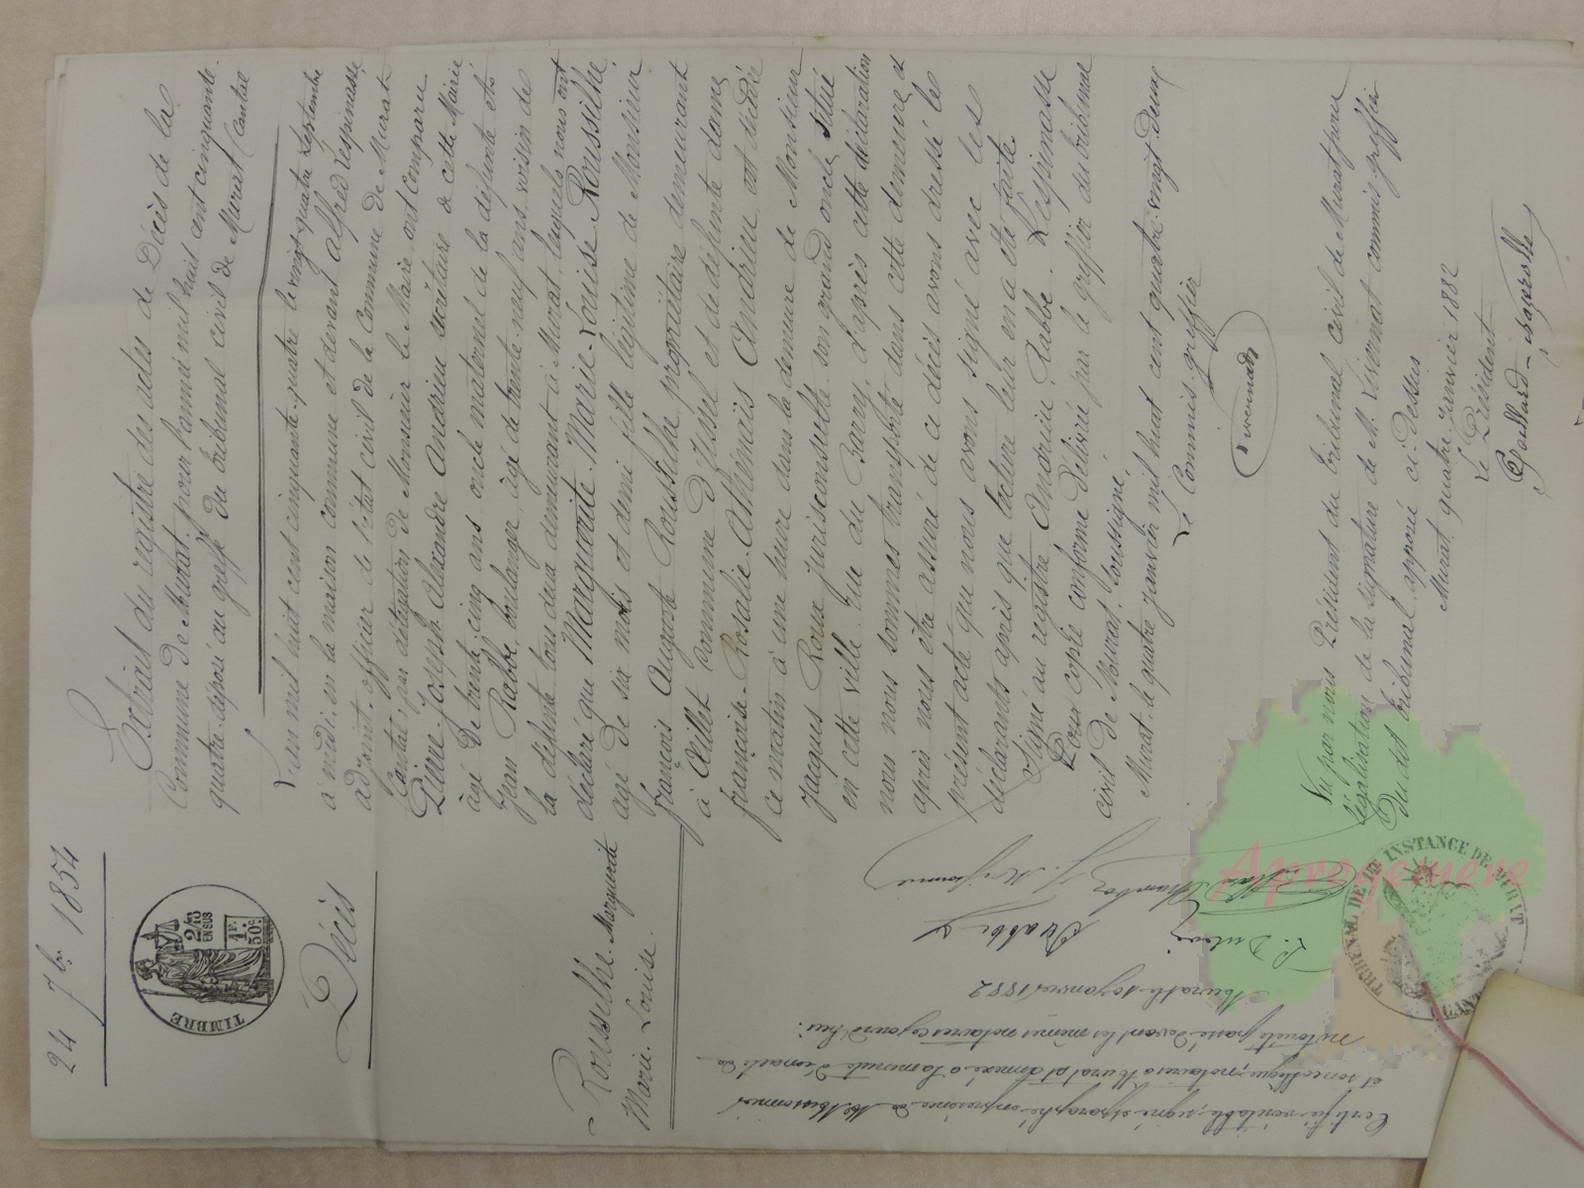 24 7bre 1854
TIMBRE
2/10
EN SUS
1F.
50c.
Décès
Rousselhe Marguerite
Marie-Louise.
Extrait du registre des actes de Décès de la
Commune de Murat, pour l'année mil huit cent cinquante-
quatre, déposé au greffe du tribunal civil de Murat Cantal
L'an mil huit cent cinquante-quatre le vingt-quatre septembre
à midi, en la maison commune et devant Alfred Lespinasse
adjoint, officier de l'état civil de la Commune de Murat
Cantal, par délégation de Monsieur le Maire, ont comparu
Pierre-Joseph Alexandre Andrieu secrétaire de cette Mairie
âgé de trente-cinq ans oncle maternel de la défunte et
Jean Rabbe, boulanger, âgé de trente-neuf ans, voisin de
la défunte tous deux demeurant à Murat, lesquels nous ont
déclaré que Marguerite-Marie-Louise Rousselhe,
âgé de six mois et demi fille légitime de Monsieur
François Auguste Rousselhe propriétaire demeurant
à Aillet commune d'Ussel et de défunte dame
Françoise-Rosalie-Athénaïs Andrieu est décédée
ce matin à une heure dans la demeure de Monsieur
Jacques Roux Jurisconsulte son grand oncle, située
en cette ville rue du Barry, d'après cette déclaration
nous nous sommes transporté dans cette demeure et
après nous être assuré de ce décès avons dressé le
présent acte que nous avons signé avec les
déclarants après que lecture leur en a été faite.
Signé au registre Andrieu, Rabbe, Lespinasse
Pour copie conforme délivré par le greffier du tribunal
civil de Murat, soussigné,
Murat, le quatre janvier mil huit cent quatre-vingt deux
Le Commis greffier
Vu par nous Président du tribunal civil de Murat pour
légalisation de la signature de M. commis greffier
du dit tribunal, apposée ci-dessus
Murat, quatre Janvier 1882
Le Président
Certifié véritable, signé et paraphé en présence de Me
et son collègue, notaires à Murat et annexé à la minute d'un acte de
notoriété passé devant les mêmes notaires ce jourd'hui.
Murat le 10 janvier 1882
Rabbe
TRIBUNAL DE 1RE INSTANCE DE MURAT
CANTAL
Aprogemere